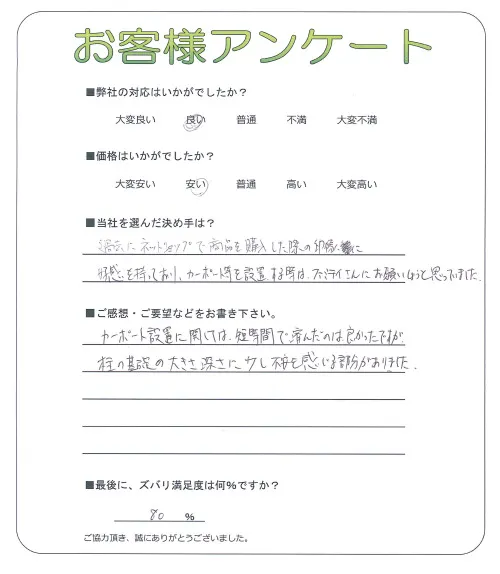 お客様アンケート
■弊社の対応はいかがでしたか？
大変良い 良い 普通 不満 大変不満
■価格はいかがでしたか？
大変安い 安い 普通 高い 大変高い
■当社を選んだ決め手は？
過去にネットショップで商品を購入した際の印象に
好感を持っており、カーポート等を設置する時は、さんにお願いしようと思ってました.
■ご感想・ご要望などをお書き下さい。
カーポート設置に関しては、短時間で済んだのは良かったですが
柱の基礎の大きさ深さに少し不安を感じる部分がありました.
■最後に、ズバリ満足度は何％ですか？
80 ％
ご協力頂き、誠にありがとうございました。